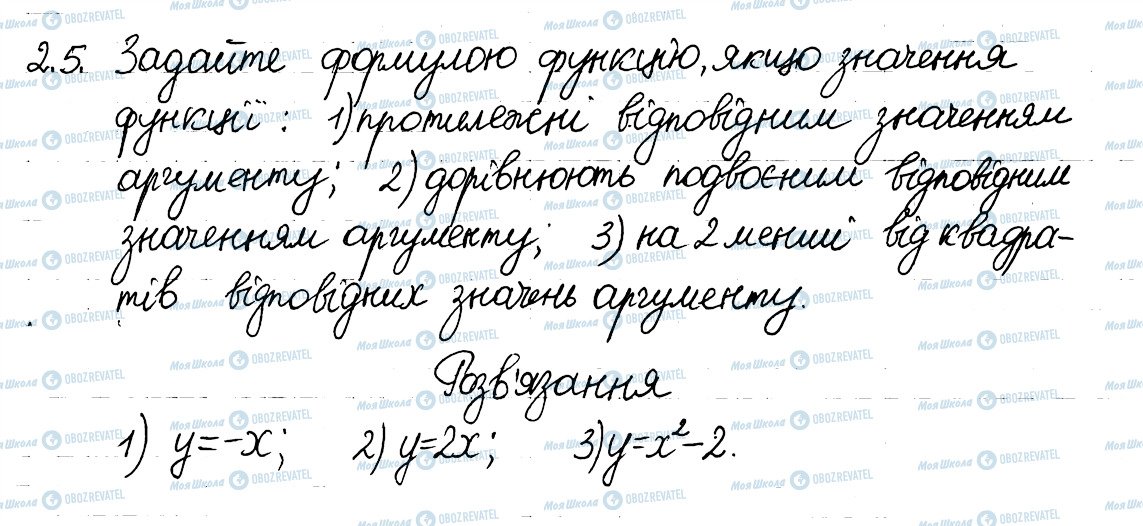 2.5. Задайте формулою функцію, якщо значення
функції: 1) протилежні відповідним значенням
аргументу; 2) дорівнюють подвоєним відповідним
значенням аргументу; 3) на 2 менші від квадра-
тів відповідних значень аргументу.
Розв'язання
1) y=-x; 2) y=2x; 3) y=x²-2.